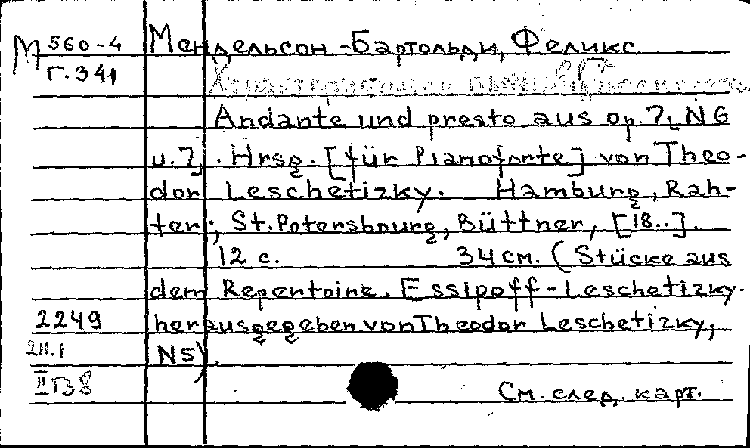 М 560-4
Г.341
Мендельсон-Бартольди, Феликс
Andante und presto aus op.7, N6
u.7. Hrsg. [für Pianoforte] von Theo-
dor Leschetizky. Hamburg, Rah-
ter; St.Petersbourg, Büttner, [18..].
12 с. 34 см. (Stücke aus
dem Repertoire. Essipoff-Leschetizky.
herausgegeben von Theodor Leschetizky,
N5).
2249
См. след. карт.